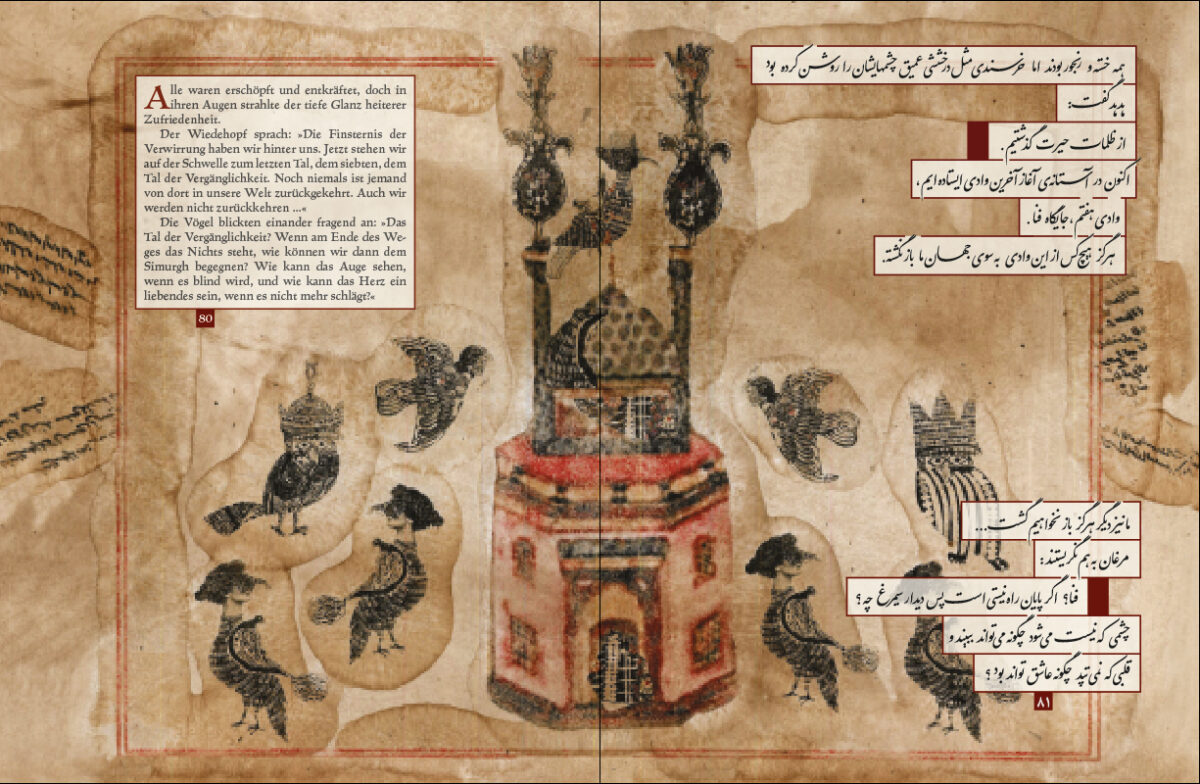 Alle waren erschöpft und entkräftet, doch in
ihren Augen strahlte der tiefe Glanz heiterer
Zufriedenheit.
Der Wiedehopf sprach: »Die Finsternis der
Verwirrung haben wir hinter uns. Jetzt stehen wir
auf der Schwelle zum letzten Tal, dem siebten, dem
Tal der Vergänglichkeit. Noch niemals ist jemand
von dort in unsere Welt zurückgekehrt. Auch wir
werden nicht zurückkehren ...«
Die Vögel blickten einander fragend an: »Das
Tal der Vergänglichkeit? Wenn am Ende des We-
ges das Nichts steht, wie können wir dann dem
Simurgh begegnen? Wie kann das Auge sehen,
wenn es blind wird, und wie kann das Herz ein
liebendes sein, wenn es nicht mehr schlägt?«
80
همه خسته و رنجور بودند اما خرسندی مثل درخششی عمیق چشمهایشان را روشن کرده بود
هدهد گفت:
از ظلمات حیرت گذشتیم.
اکنون در آستانه‌ی آغاز آخرین وادی ایستاده ایم،
وادی هفتم، جایگاه فنا.
هرگز هیچ کس از این وادی به سوی جهان ما باز نگشته.
ما نیز دیگر هرگز باز نخواهیم گشت...
مرغان به هم نگریستند:
فنا؟ اگر پایان راه نیستی است پس دیدار سیمرغ چه؟
چشمی که نیست می‌شود چگونه می‌تواند ببیند و
قلبی که نمی‌تپد چگونه عاشق تواند بود؟
۸۱